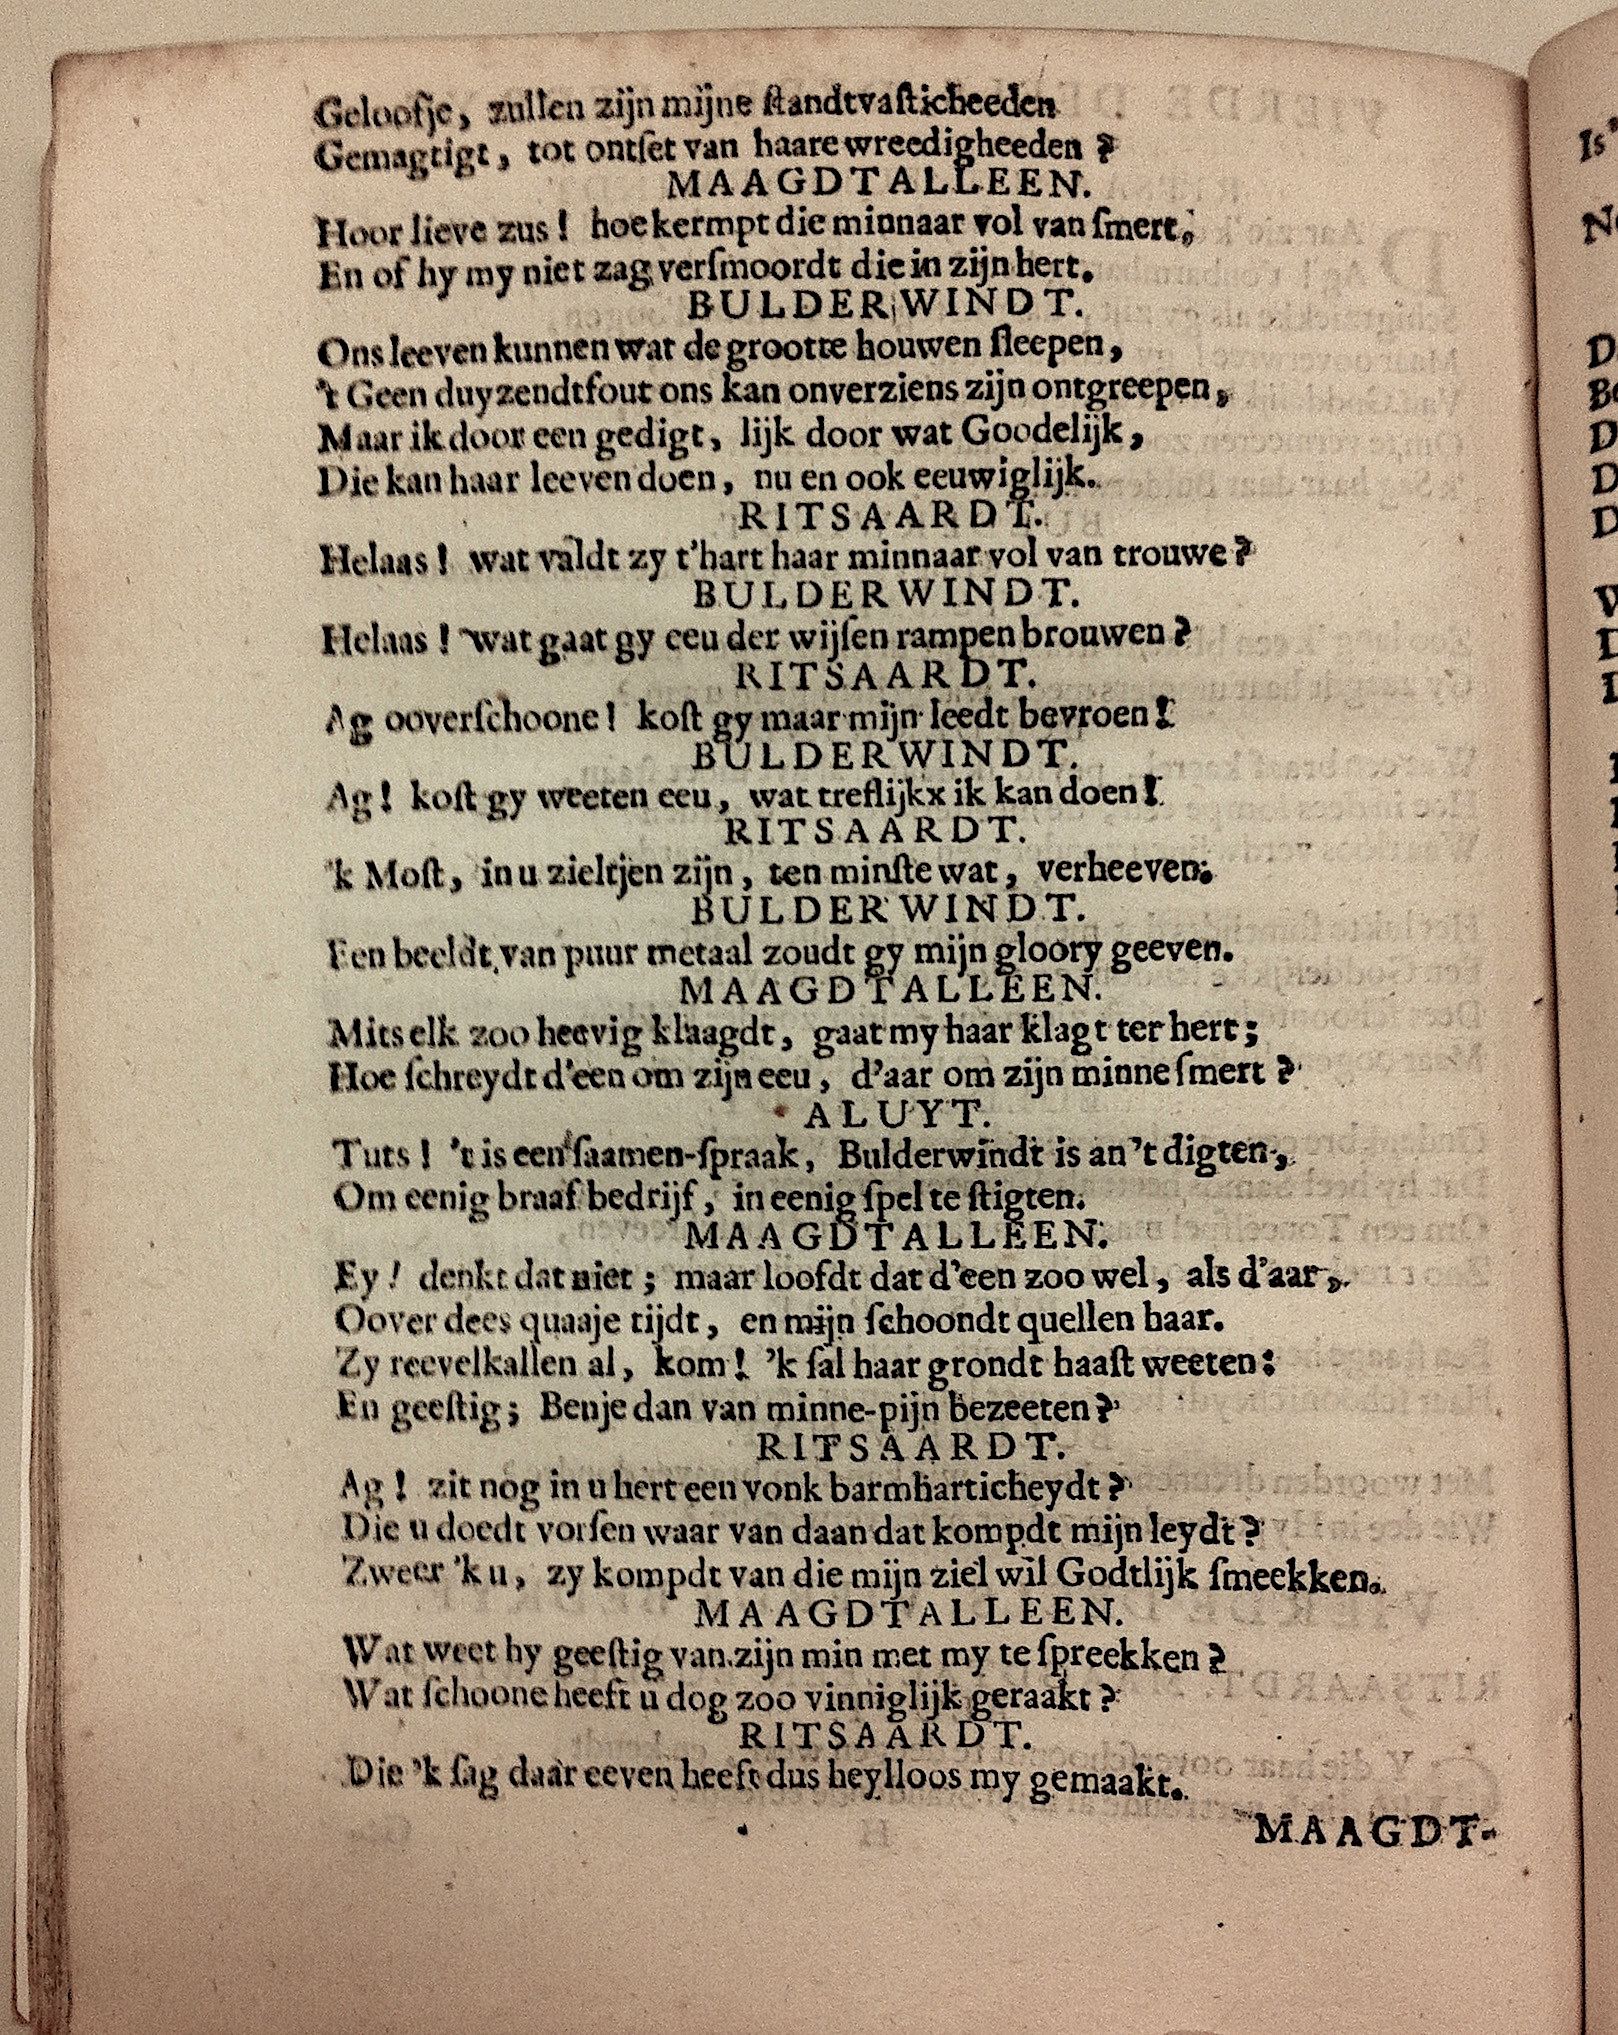 Geloofje, zullen zijn mijne ſtandtvaſticheeden
Gemagtigt, tot ontſet van haare wreedigheeden?
MAAGDTALLEEN.
Hoor lieve zus! hoe kermpt die minnaar vol van ſmert,
En of hy my niet zag verſmoordt die in zijn hert.
BULDERWINDT.
Ons leeven kunnen wat de grootte houwen ſleepen,
't Geen duyzendtfout ons kan onverziens zijn ontgreepen,
Maar ik door een gedigt, lijk door wat Goodelijk,
Die kan haar leeven doen, nu en ook eeuwiglijk.
RITSAARDT.
Helaas! wat valdt zy t'hart haar minnaar vol van trouwe?
BULDERWINDT.
Helaas! wat gaat gy eeu der wijſen rampen brouwen?
RITSAARDT.
Ag ooverſchoone! koſt gy maar mijn leedt bevroen!
BULDERWINDT.
Ag! koſt gy weeten eeu, wat treflijkx ik kan doen!
RITSAARDT.
'k Moſt, in u zieltjen zijn, ten minſte wat, verheeven:
BULDERWINDT.
Een beeldt van puur metaal zoudt gy mijn gloory geeven.
MAAGDTALLEEN.
Mits elk zoo heevig klaagdt, gaat my haar klagt ter hert;
Hoe ſchreydt d'een om zijn eeu, d'aar om zijn minne ſmert?
ALUYT.
Tuts! 't is een ſaamen-ſpraak, Bulderwindt is an 't digten,
Om eenig braaf bedrijf, in eenig ſpel te ſtigten.
MAAGDTALLEEN.
Ey! denkt dat niet; maar loofdt dat d'een zoo wel, als d'aar,
Oover dees quaaje tijdt, en mijn ſchoondt quellen haar.
Zy reevelkallen al, kom! 'k ſal haar grondt haaſt weeten:
En geeſtig; Benje dan van minne-pijn bezeeten?
RITSAARDT.
Ag! zit nog in u hert een vonk barmharticheydt?
Die u doedt vorſen waar van daan dat kompdt mijn leydt?
Zweer 'k u, zy kompdt van die mijn ziel wil Godtlijk ſmeekken.
MAAGDTALLEEN.
Wat weet hy geeſtig van zijn min met my te ſpreekken?
Wat ſchoone heeft u dog zoo vinniglijk geraakt?
RITSAARDT.
Die 'k ſag daar eeven heeft dus heylloos my gemaakt.
MAAGDT-